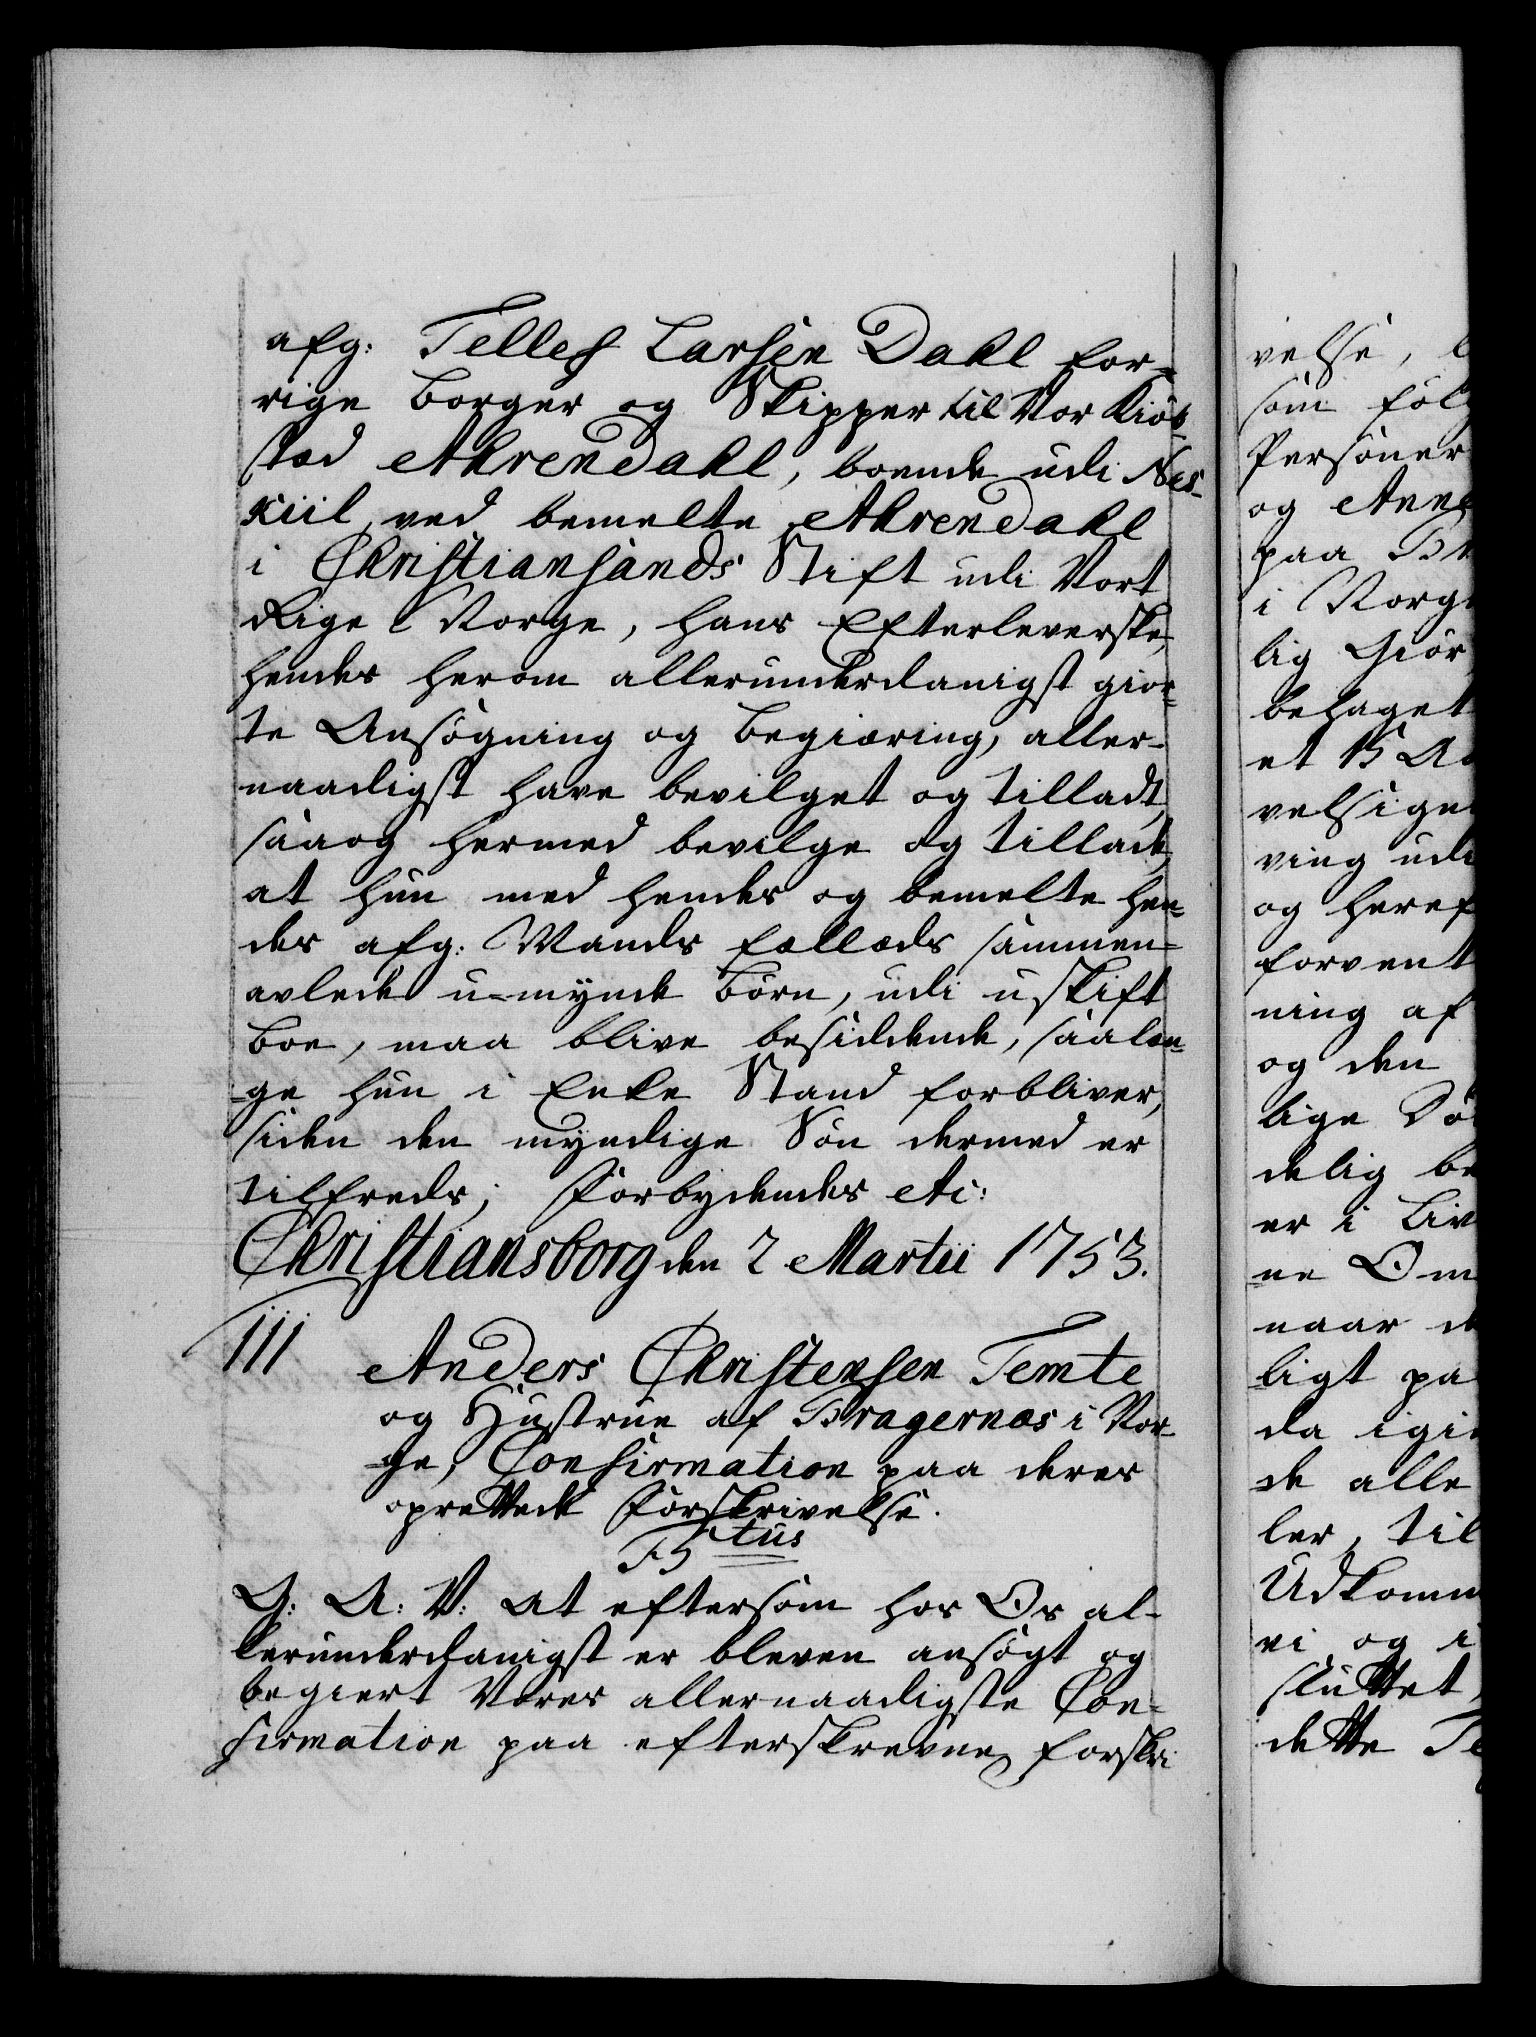 afg: Tellef Larsen Dahl for-
rige Borger og Skipper til Vor Kiøb-
stæd Ahrendahl, boende udi Nes-
kiil ved bemelte Ahrendahl
i Christiansands Stift udi Vort
Rige Norge, hans Efterleverske,
hendes herom allerunderdanigst gior-
te Ansøgning og Begiæring, aller-
naadigst have bevilget og tilladt,
saa og hermed bevilge og tillade,
at hun med hendes og bemelte hen-
des afg: Mands fælleds sammen-
avlede u-mynde Børn, udi uskift
Boe, maa blive besiddende, saalæn-
ge hun i Enke Stand forbliver,
siden den myndige Søn dermed er
tilfreds; Forbydendes etc:
Christiansborg den 2 Martii 1753.
111 Anders Christensen Temte
og Hustrue af Bragernæs i Nor-
ge, Confirmation paa deres
oprettede Forskrivelse.
B tus
G: A: V: At eftersom hos Os al-
lerunderdanigst er bleven ansøgt og
begiert Vores allernaadigste Con-
firmation paa efterskrevne forskri-
velse,
som følg
Personer
og Anne
paa
i Norge
lig Giør
behaget
et
velsigne
ving udi
og heref
forvent
ning af
og den
lige Dø
delig be
er i Liv
ne Om
naar de
ligt pa
da igie
de alle
ler, til
Udkomm
vi og i
sluttet
dette Te